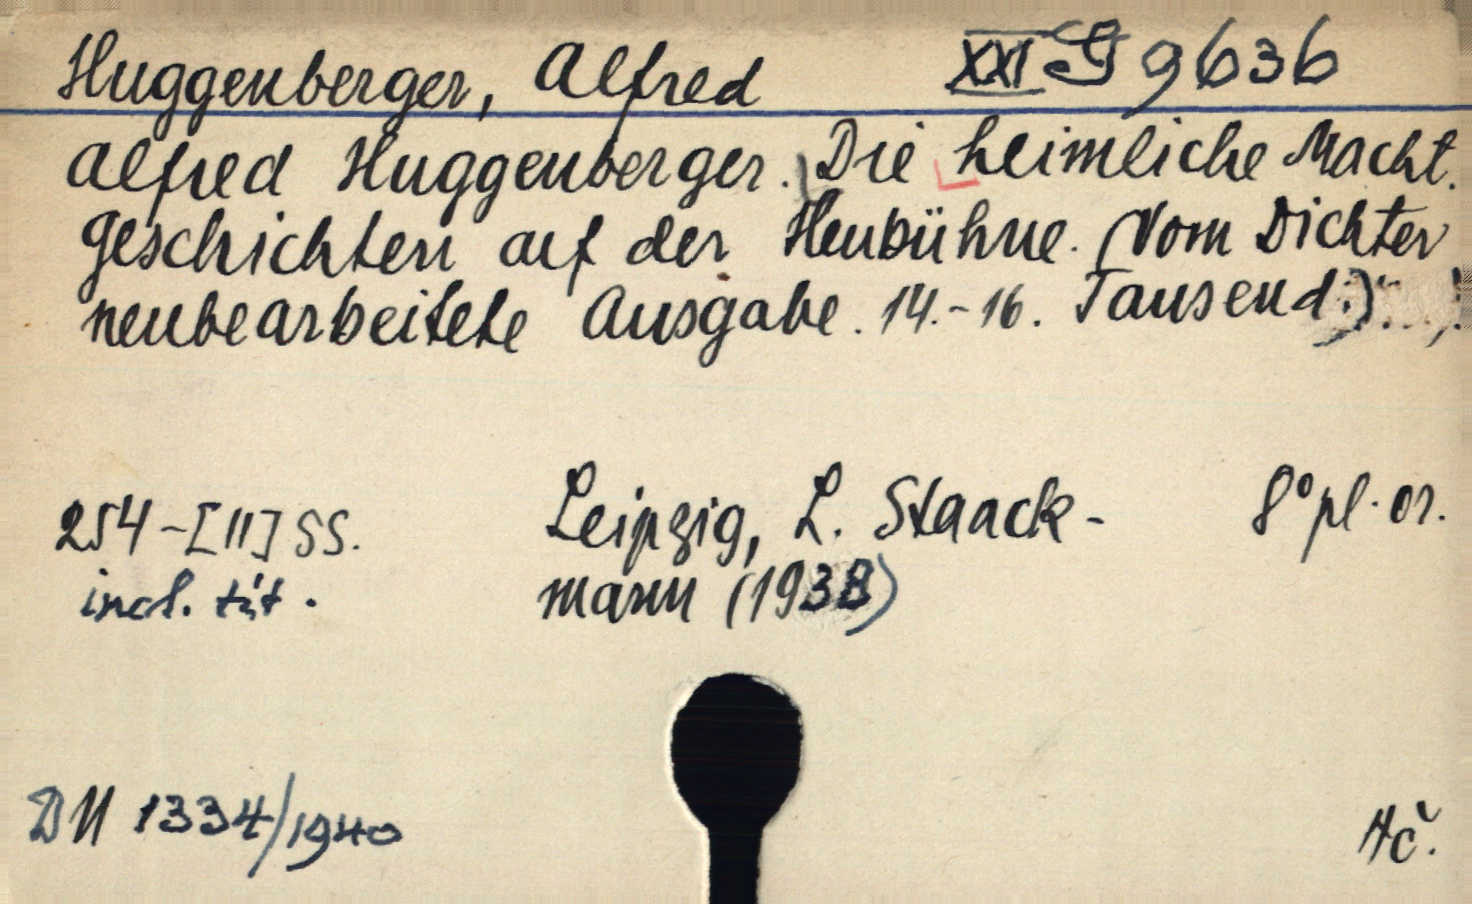 Huggenberger, Alfred XXI G 9636
Alfred Huggenberger. Die heimliche Macht.
Geschichten auf der Heubühne. (Vom Dichter
neubearbeitete Ausgabe. 14.-16. Tausend.)
254-[II] SS. Leipzig, L. Staack- 8° pl. or.
incl. tit. mann (1938)
DN 1334/1940 Hč.